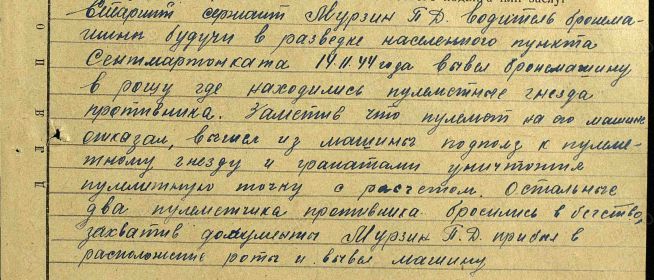 Старший сержант Мурзин П.Д. водитель бронема-
шины будучи в разведке населенного пункта
Сентмартонката 19.11.44 года вывел бронемашину
в рощу где находились пулеметные гнезда
противника. Заметив что пулемет на его машине
отказал, вышел из машины подполз к пулеме-
тному гнезду и гранатами уничтожил
пулеметную точку с расчетом. Остальные
два пулеметчика противника бросились в бегство,
захватив документы Мурзин П.Д. прибыл в
расположение роты и вывел машину